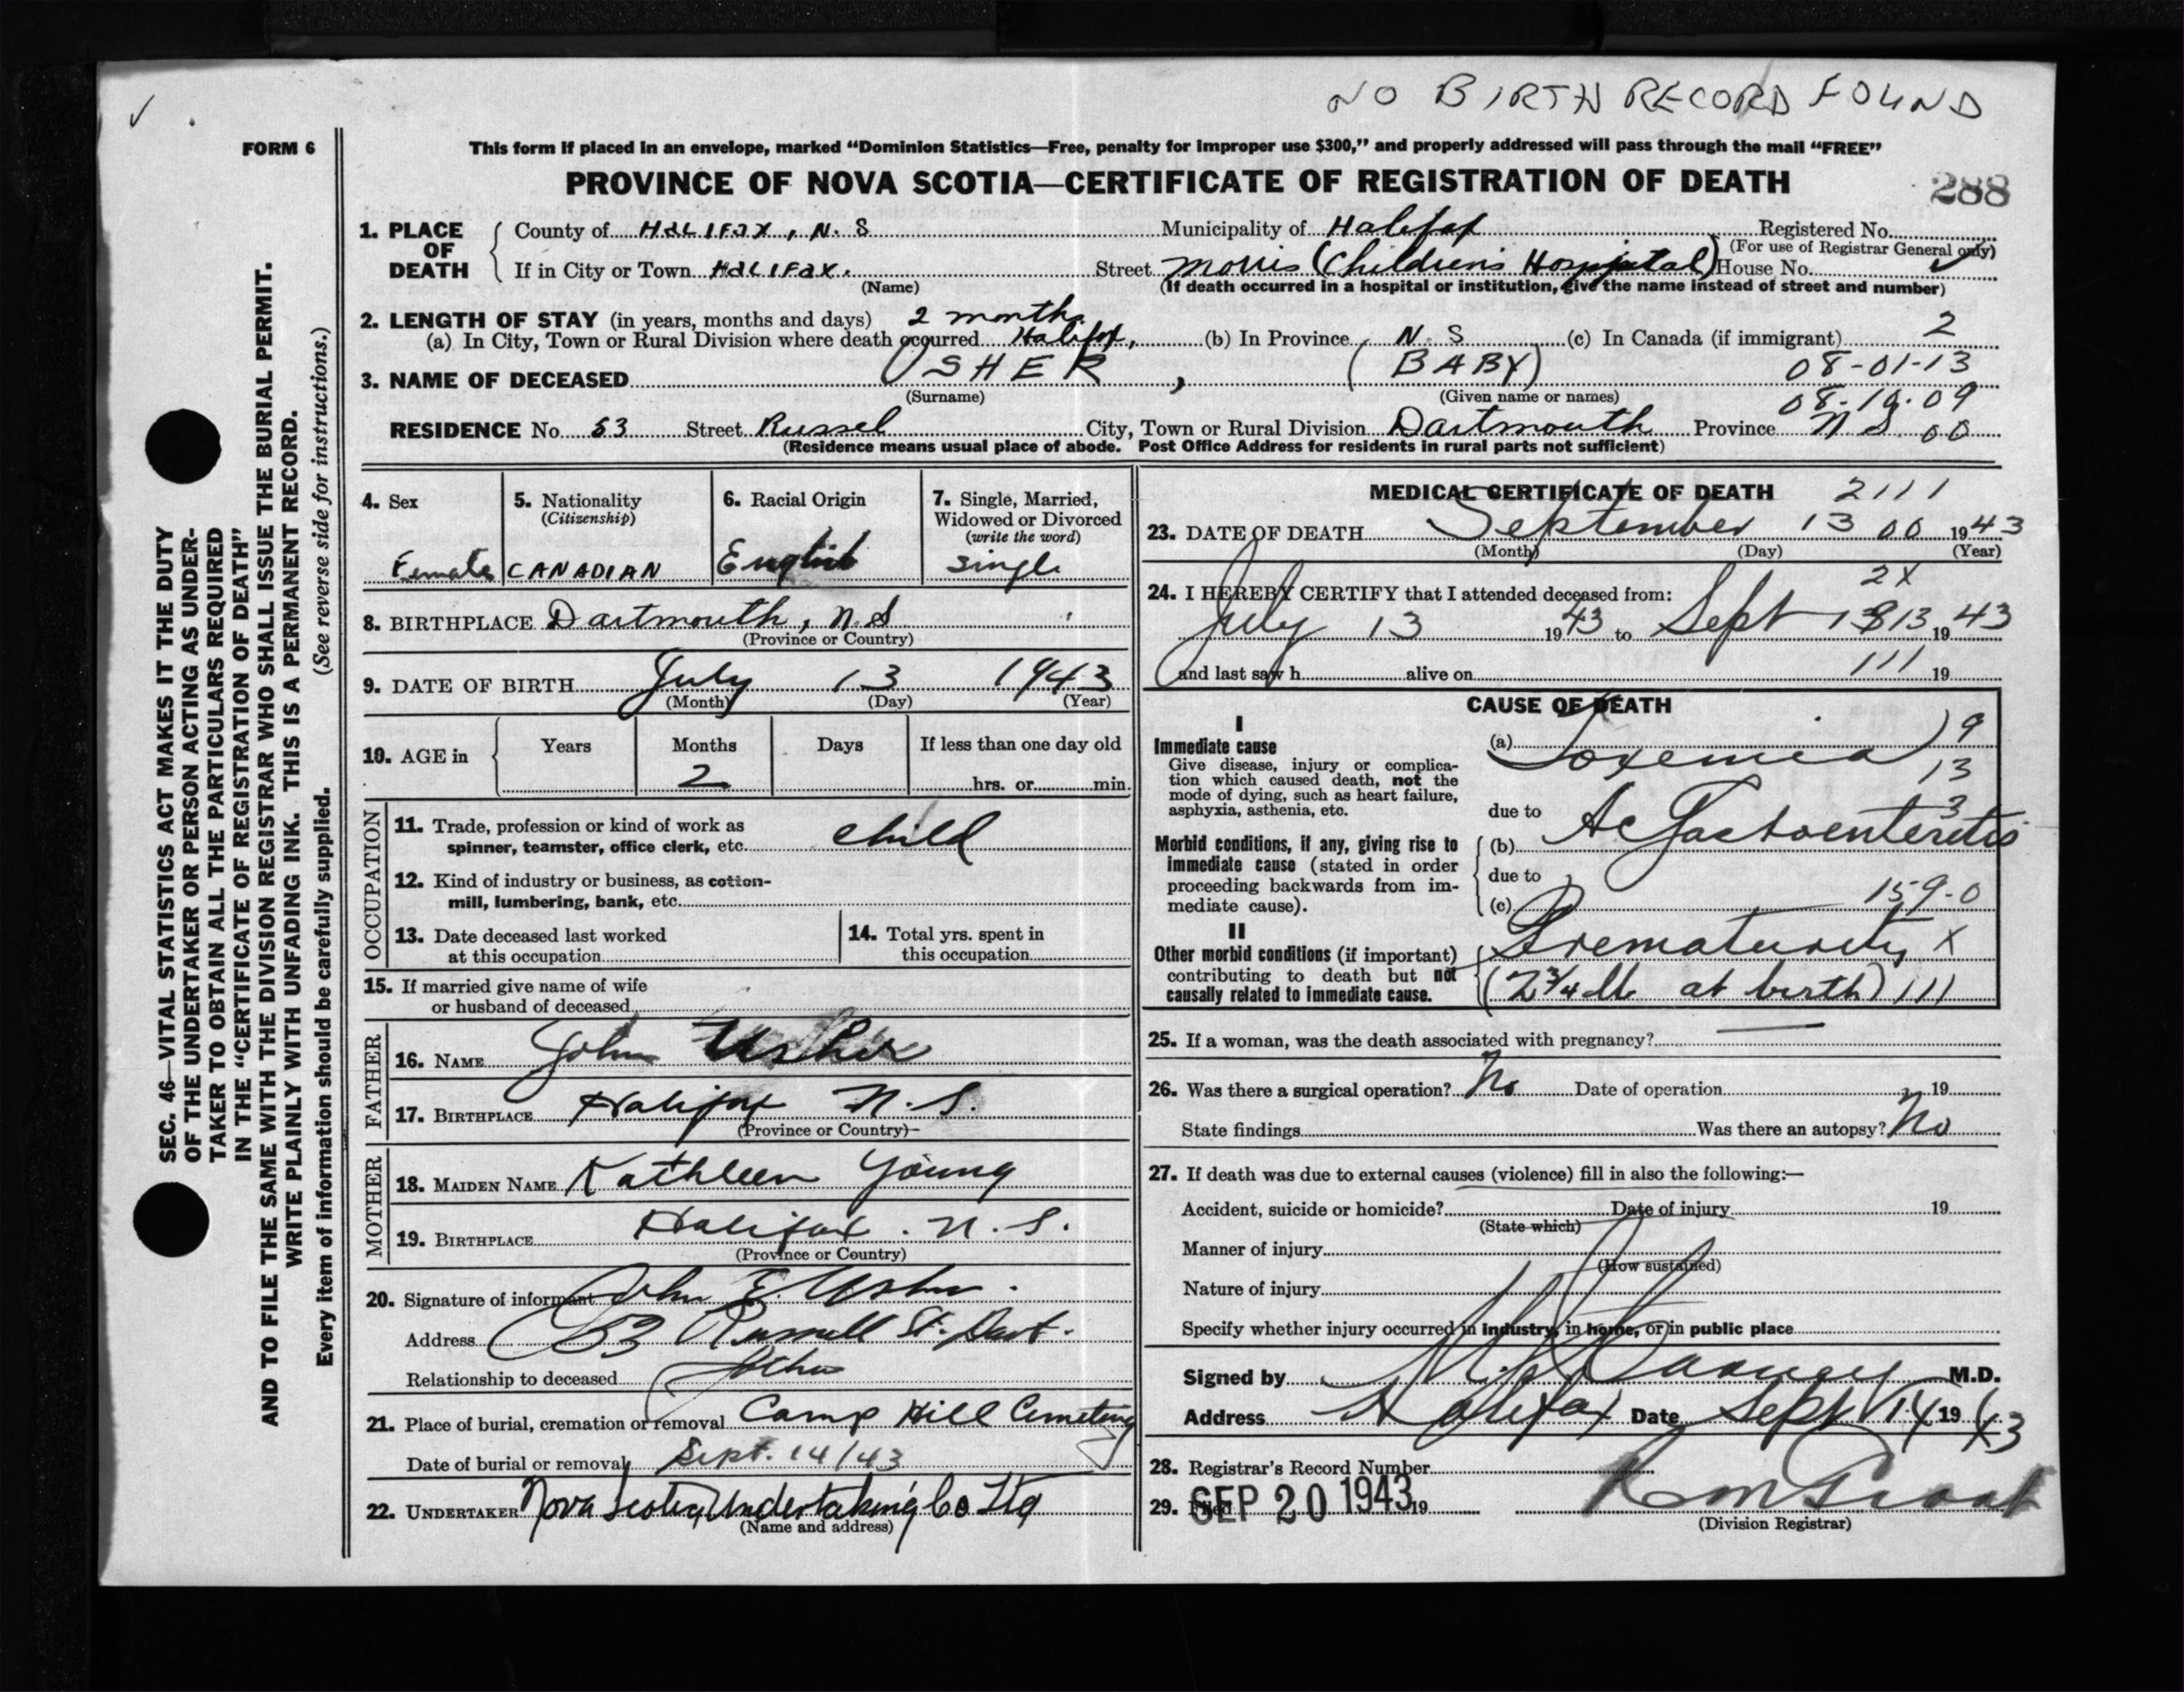 NO BIRTH RECORD FOUND
FORM 6
This form if placed in an envelope, marked "Dominion Statistics—Free, penalty for improper use $300," and properly addressed will pass through the mail "FREE"
PROVINCE OF NOVA SCOTIA—CERTIFICATE OF REGISTRATION OF DEATH
288
SEC. 46—VITAL STATISTICS ACT MAKES IT THE DUTY
OF THE UNDERTAKER OR PERSON ACTING AS UNDER-
TAKER TO OBTAIN ALL THE PARTICULARS REQUIRED
IN THE "CERTIFICATE OF REGISTRATION OF DEATH"
AND TO FILE THE SAME WITH THE DIVISION REGISTRAR WHO SHALL ISSUE THE BURIAL PERMIT.
WRITE PLAINLY WITH UNFADING INK. THIS IS A PERMANENT RECORD.
Every item of information should be carefully supplied. (See reverse side for instructions.)
1. PLACE OF DEATH
County of HALIFAX, N. S Municipality of Halifax Registered No.
(For use of Registrar General only)
If in City or Town HALIFAX. Street Morris (Children's Hospital) House No.
(Name) (If death occurred in a hospital or institution, give the name instead of street and number)
2. LENGTH OF STAY (in years, months and days) 2 months
(a) In City, Town or Rural Division where death occurred Halifax, (b) In Province N. S (c) In Canada (if immigrant) 2
3. NAME OF DECEASED USHER, (BABY) 08-01-13
(Surname) (Given name or names) 08-10-09
RESIDENCE No. 53 Street Russel City, Town or Rural Division Dartmouth Province N S. 00
(Residence means usual place of abode. Post Office Address for residents in rural parts not sufficient)
4. Sex Female
5. Nationality (Citizenship) CANADIAN
6. Racial Origin English
7. Single, Married, Widowed or Divorced (write the word) Single
8. BIRTHPLACE Dartmouth, N.S
(Province or Country)
9. DATE OF BIRTH July 13 1943
(Month) (Day) (Year)
10. AGE in Years Months Days If less than one day old
2 hrs. or min.
OCCUPATION
11. Trade, profession or kind of work as
spinner, teamster, office clerk, etc. child
12. Kind of industry or business, as cotton-
mill, lumbering, bank, etc.
13. Date deceased last worked
at this occupation
14. Total yrs. spent in
this occupation
15. If married give name of wife
or husband of deceased
FATHER
16. NAME John Usher
17. BIRTHPLACE Halifax N.S.
(Province or Country)
MOTHER
18. MAIDEN NAME Kathleen Young
19. BIRTHPLACE Halifax. N. S.
(Province or Country)
20. Signature of informant John E. Usher.
Address 53 Russell St. Dart.
Relationship to deceased father
21. Place of burial, cremation or removal Camp Hill Cemetery
Date of burial or removal Sept. 14/43
22. UNDERTAKER Nova Scotia Undertaking Co Ltd
(Name and address)
MEDICAL CERTIFICATE OF DEATH 2111
23. DATE OF DEATH September 13 00 1943
(Month) (Day) (Year)
2X
24. I HEREBY CERTIFY that I attended deceased from:
July 13 1943 to Sept 13 1943
and last saw h alive on 111 19
CAUSE OF DEATH
I
Immediate cause
Give disease, injury or complica-
tion which caused death, not the
mode of dying, such as heart failure,
asphyxia, asthenia, etc.
(a) Toxemia 9
13
due to 3
Morbid conditions, if any, giving rise to
immediate cause (stated in order
proceeding backwards from im-
mediate cause).
(b) Ac Gastroenteritis
due to
(c) 159-0
II
Other morbid conditions (if important)
contributing to death but not
causally related to immediate cause.
Prematurity X
(2 3/4 lb at birth) 111
25. If a woman, was the death associated with pregnancy?
26. Was there a surgical operation? No Date of operation 19
State findings Was there an autopsy? No
27. If death was due to external causes (violence) fill in also the following:—
Accident, suicide or homicide? Date of injury 19
(State which)
Manner of injury
(How sustained)
Nature of injury
Specify whether injury occurred in industry, in home, or in public place
Signed by M.D.
Address Halifax Date Sept 14 1943
28. Registrar's Record Number
29. Filed SEP 20 1943 19
(Division Registrar)